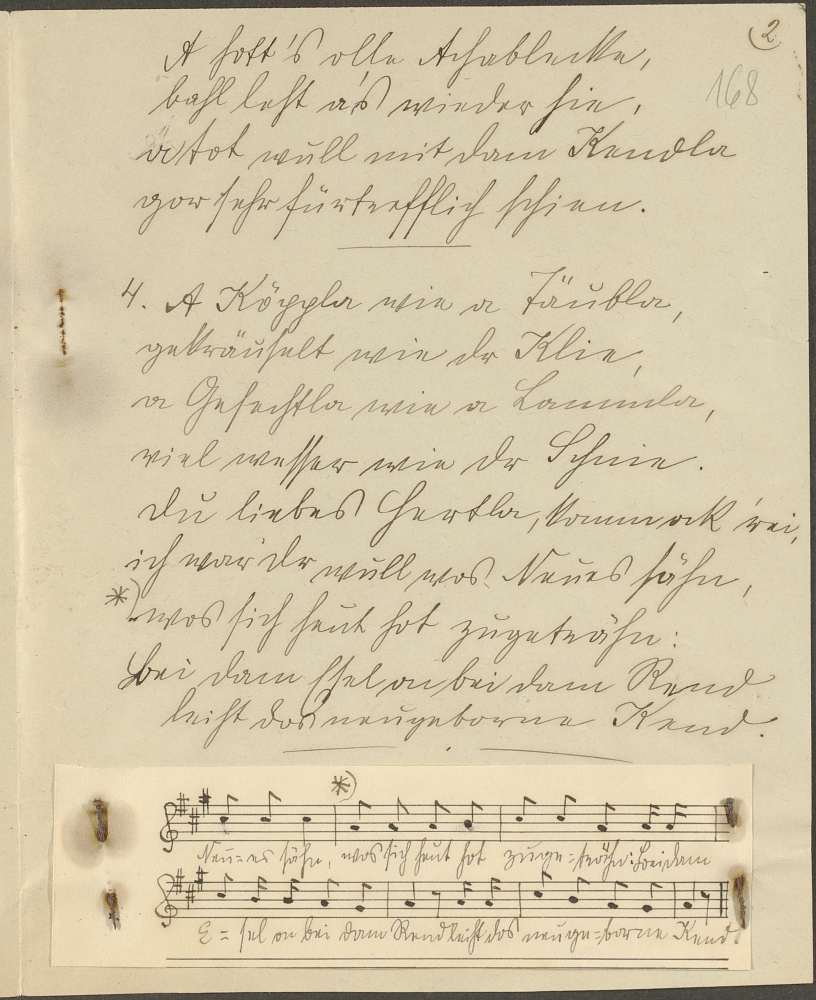 2
168
A hott's olle Achablecke,
bahl leht ā's wieder hie,
a tot wull mit dam Kendla
gor sehr fürtrefflich schien.
4. A Köppla wie a Täubla,
gekräuselt wie dr Klie,
a Gesechtla wie a Lammla,
viel wesser wie dr Schnie.
Du liebes Hertla, komm ock 'rei,
ich war dr wull wos Neues sähn,
*) wos sich heut hot zugeträhn:
Bei dam Esel on bei dam Rend
leiht dos neugeborne Kend.
*)
Neu=es sähn, wos sich heut hot zuge=trähn: Bei dam
E=sel on bei dam Rend leiht dos neuge=borne Kend.